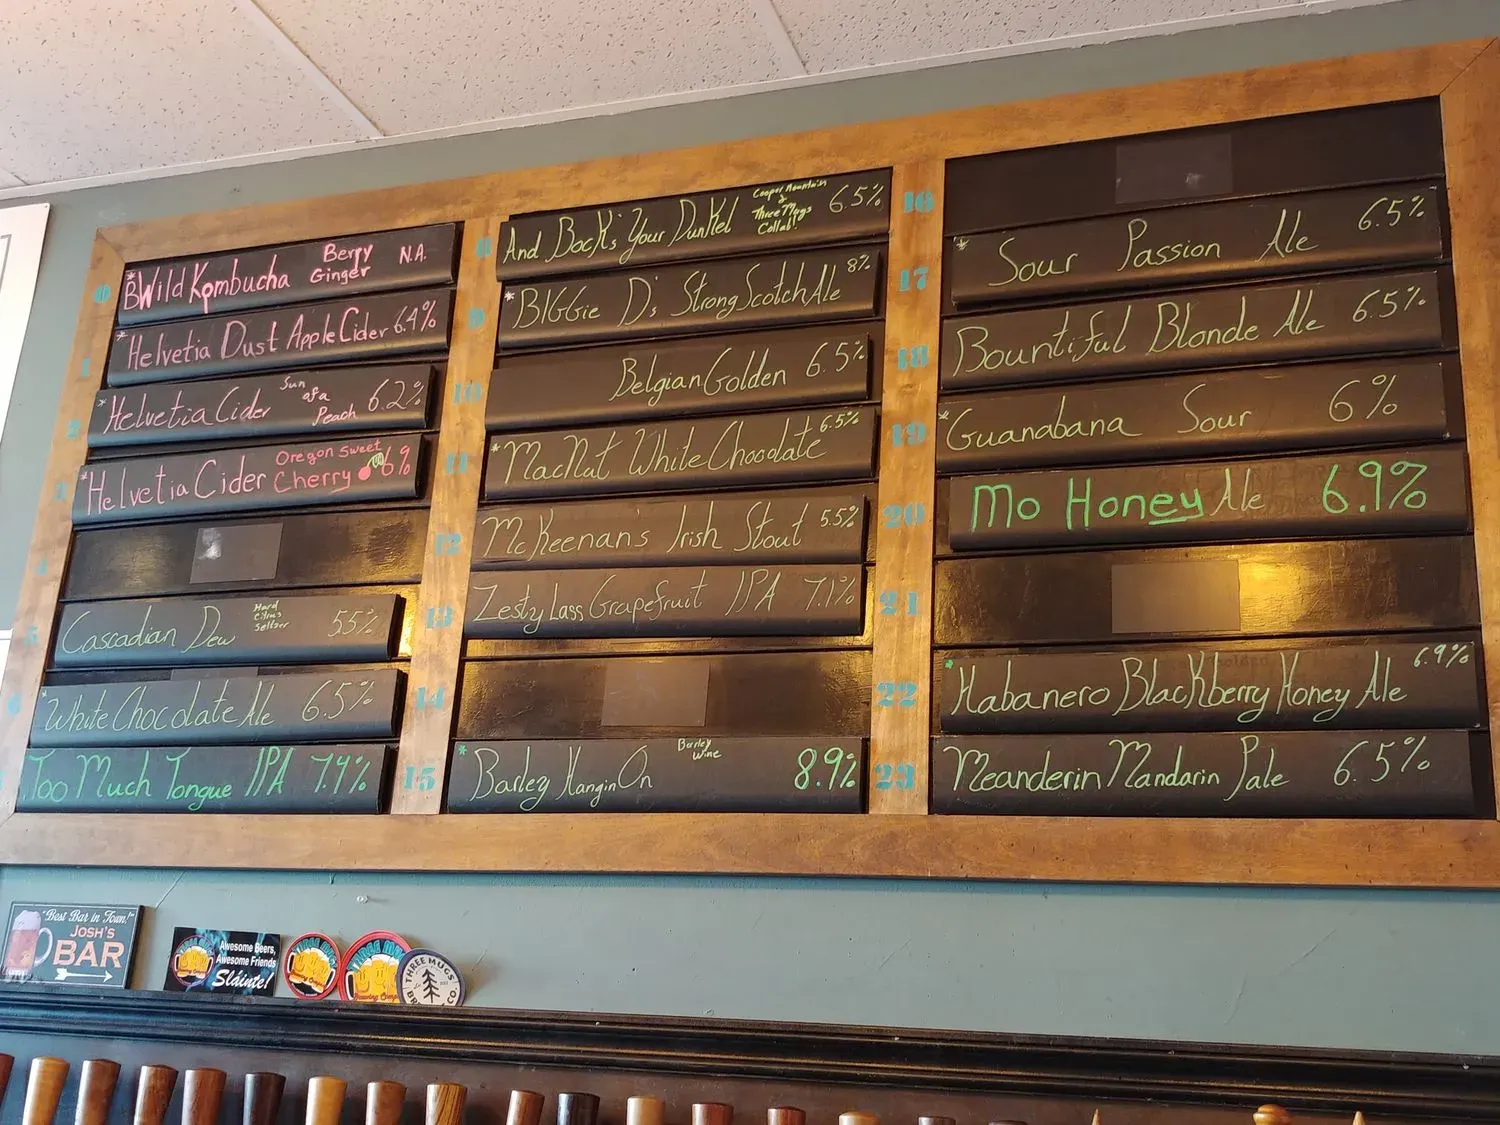 0
*BWild Kombucha Berry Ginger N.A.
1
*Helvetia Dust Apple Cider 6.4%
2
*Helvetia Cider Sun ofa Peach 6.2%
3
*Helvetia Cider Oregon Sweet Cherry 6%
4
5
Cascadian Dew Hard Citrus Seltzer 5.5%
6
*White Chocolate Ale 6.5%
Too Much Tongue IPA 7.4%
8
And Bock's Your Dunkel Cooper Mountain & Three Mugs Collab! 6.5%
9
*BIGGie D's Strong Scotch Ale 8%
10
Belgian Golden 6.5%
11
*MacNut White Chocolate 6.5%
12
McKeenan's Irish Stout 5.5%
13
Zesty Lass Grapefruit IPA 7.1%
14
15
*Barley Hangin On Barley Wine 8.9%
16
17
*Sour Passion Ale 6.5%
18
Bountiful Blonde Ale 6.5%
19
*Guanabana Sour 6%
20
Mo Honey Ale 6.9%
21
22
*Habanero Blackberry Honey Ale 6.9%
23
Meanderin Mandarin Pale 6.5%
"Best Bar in Town!"
JOSH'S
BAR
Awesome Beers,
Awesome Friends
Sláinte!
THREE MUGS